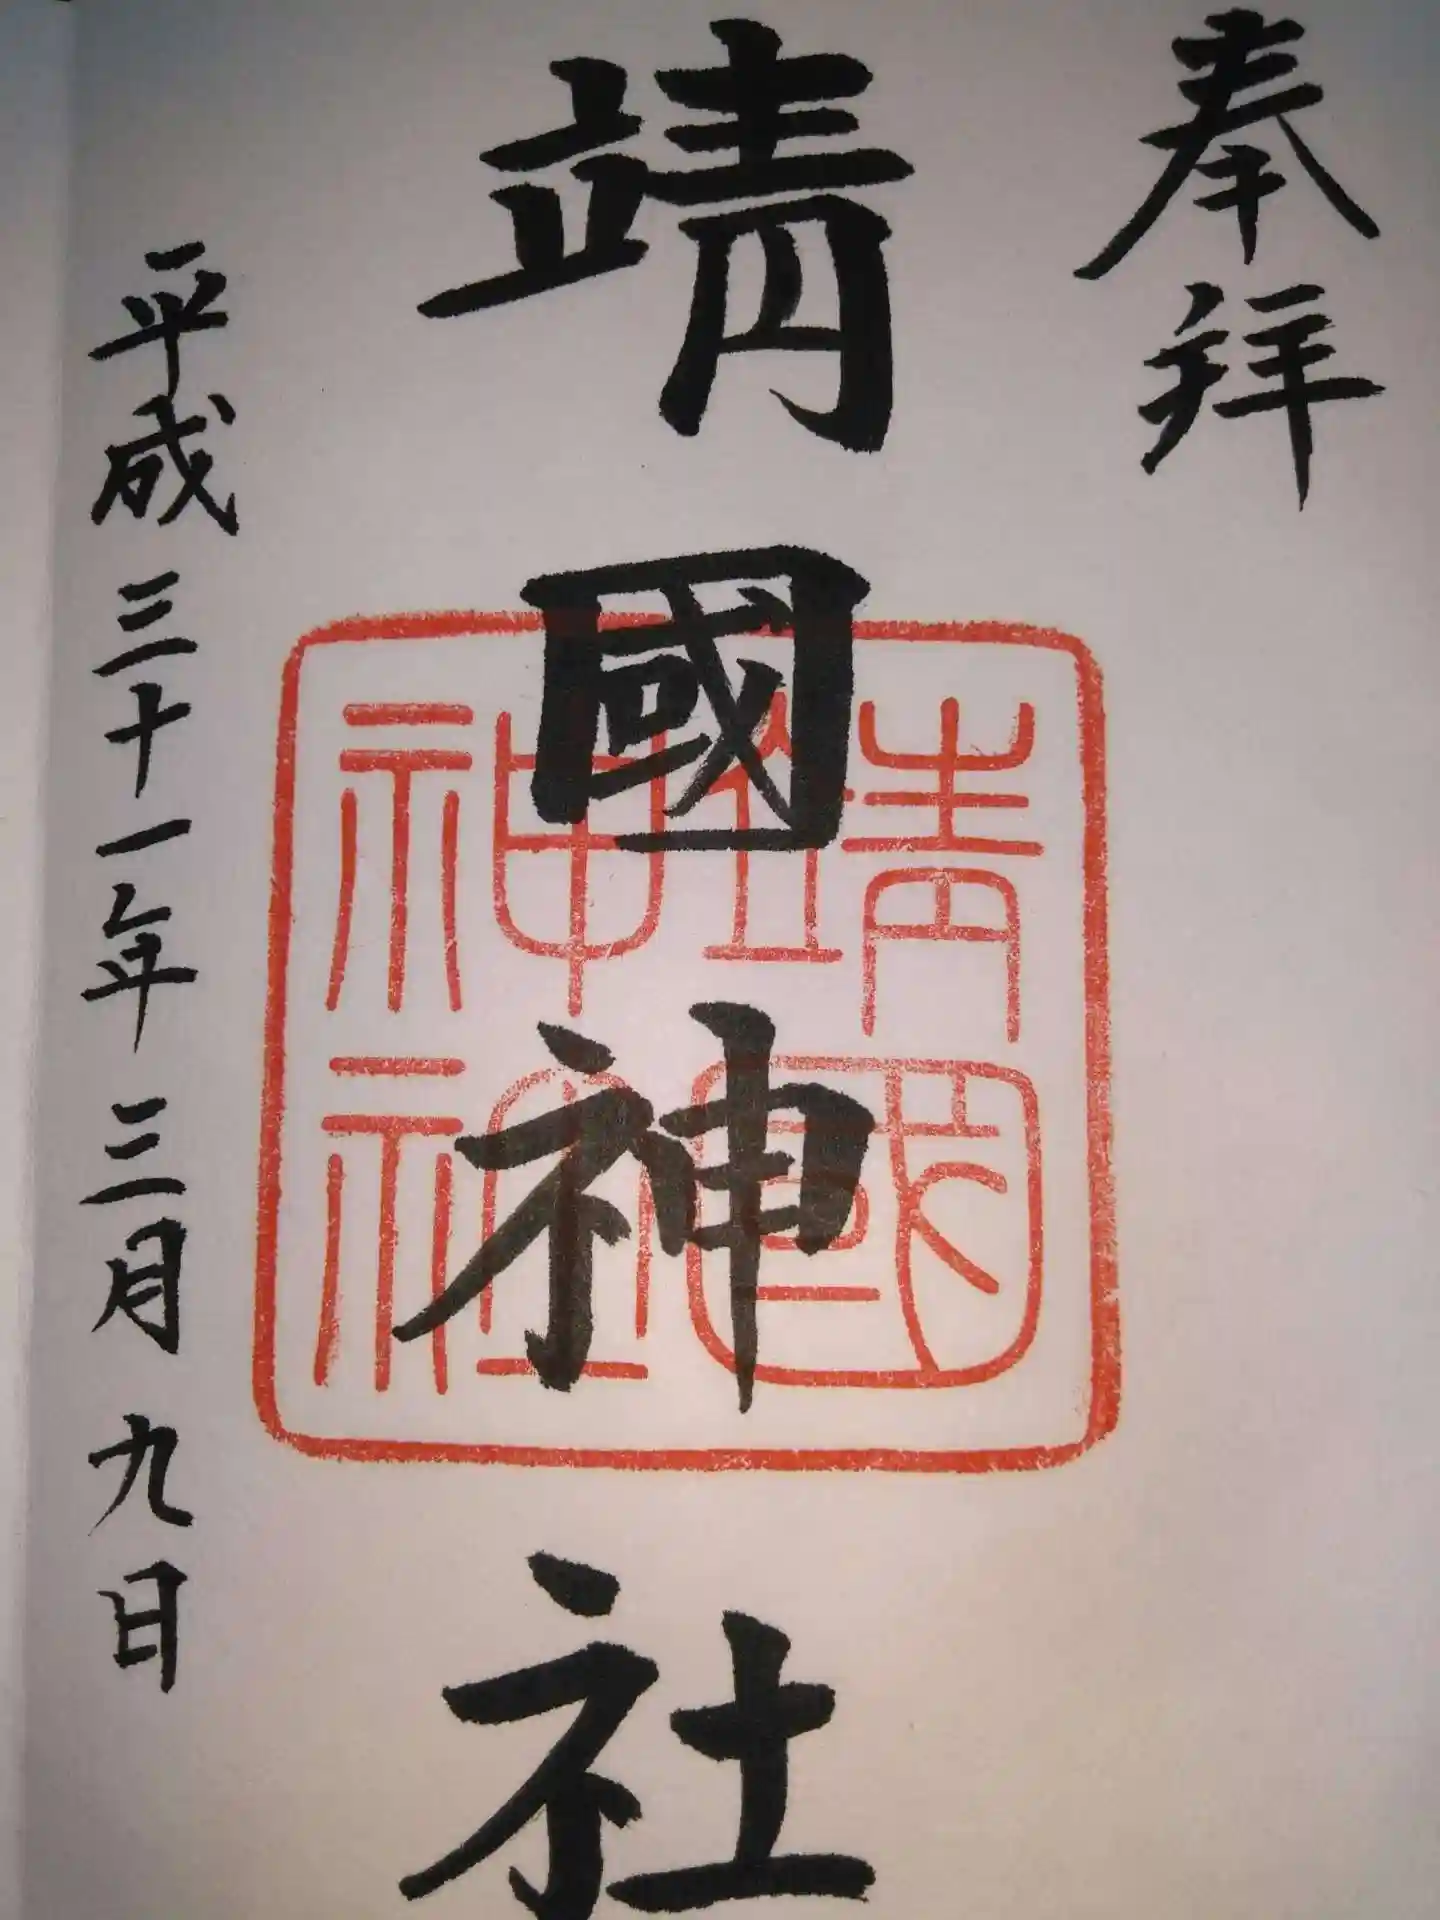 奉拜
靖國神社
靖國
神社
平成三十一年三月九日